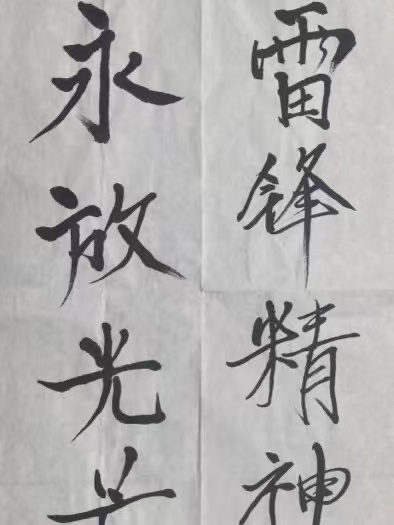 雷鋒精神
永放光